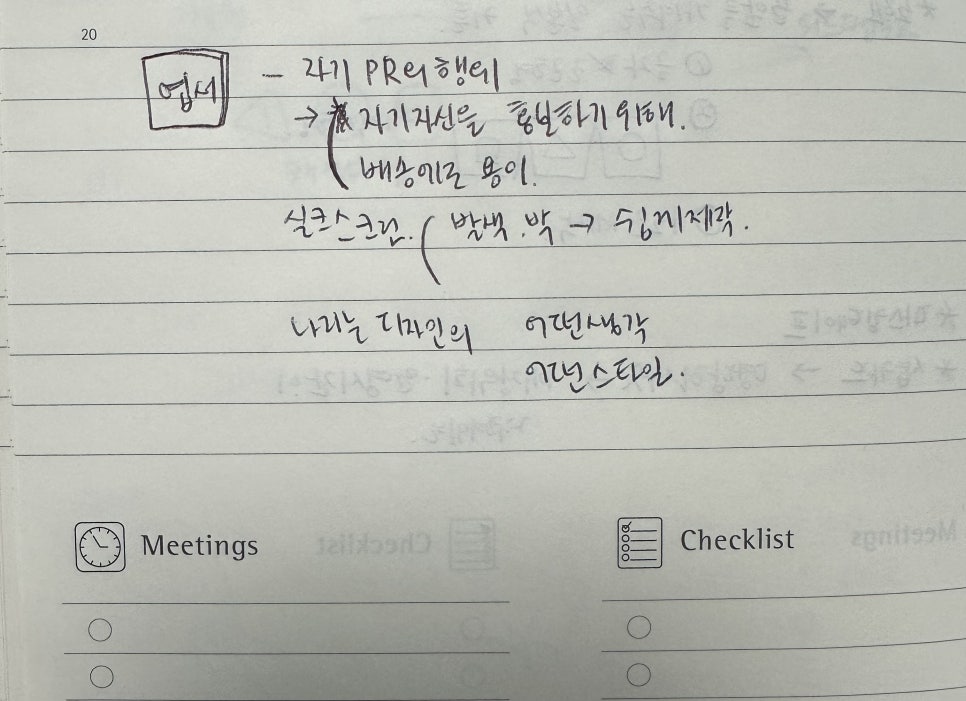 20
엽서 - 자기 PR의 행위
→ 자기자신을 홍보하기 위해.
배송에도 용이.
실크스크린. 발색. 박 → 쉽게 제작.
나라는 디자인의 어떤생각
어떤스타일.
Meetings
Checklist